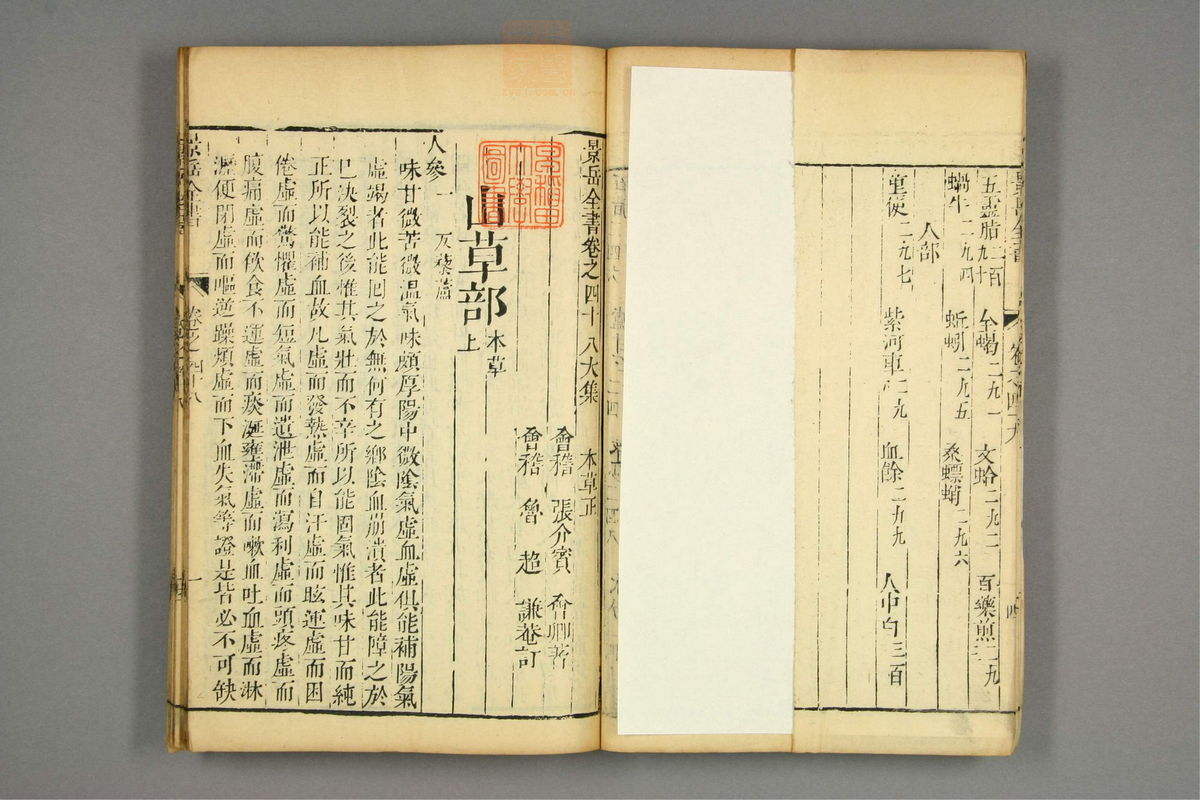 五靈脂二百九十 全蝎二九一 文蛤二九二 百藥煎二九三
蝸牛二九四 蚯蚓二九五 桑螵蛸二九六
人部
童便二九七 紫河車二九八 血餘二九九 人中白三百
景岳全書卷之四十八大集 本草正
會稽 張介賓 會卿著
會稽 魯超 謙菴訂
山草部 本草上
人參一 反藜蘆
味甘微苦微溫氣味頗厚陽中微陰氣虛血虛俱能補陽氣
虛竭者此能囘之於無何有之鄉陰血崩潰者此能障之於
已決裂之後惟其氣壯而不辛所以能固氣惟其味甘而純
正所以能補血故凡虛而發熱虛而自汗虛而眩運虛而困
倦虛而驚懼虛而短氣虛而遺泄虛而瀉利虛而頭疼虛而
腹痛虛而飲食不運虛而痰涎壅滯虛而嗽血吐血虛而淋
瀝便閉虛而嘔逆躁煩虛而下血失氣等證是皆必不可缺
景岳全書 卷之四十八 一